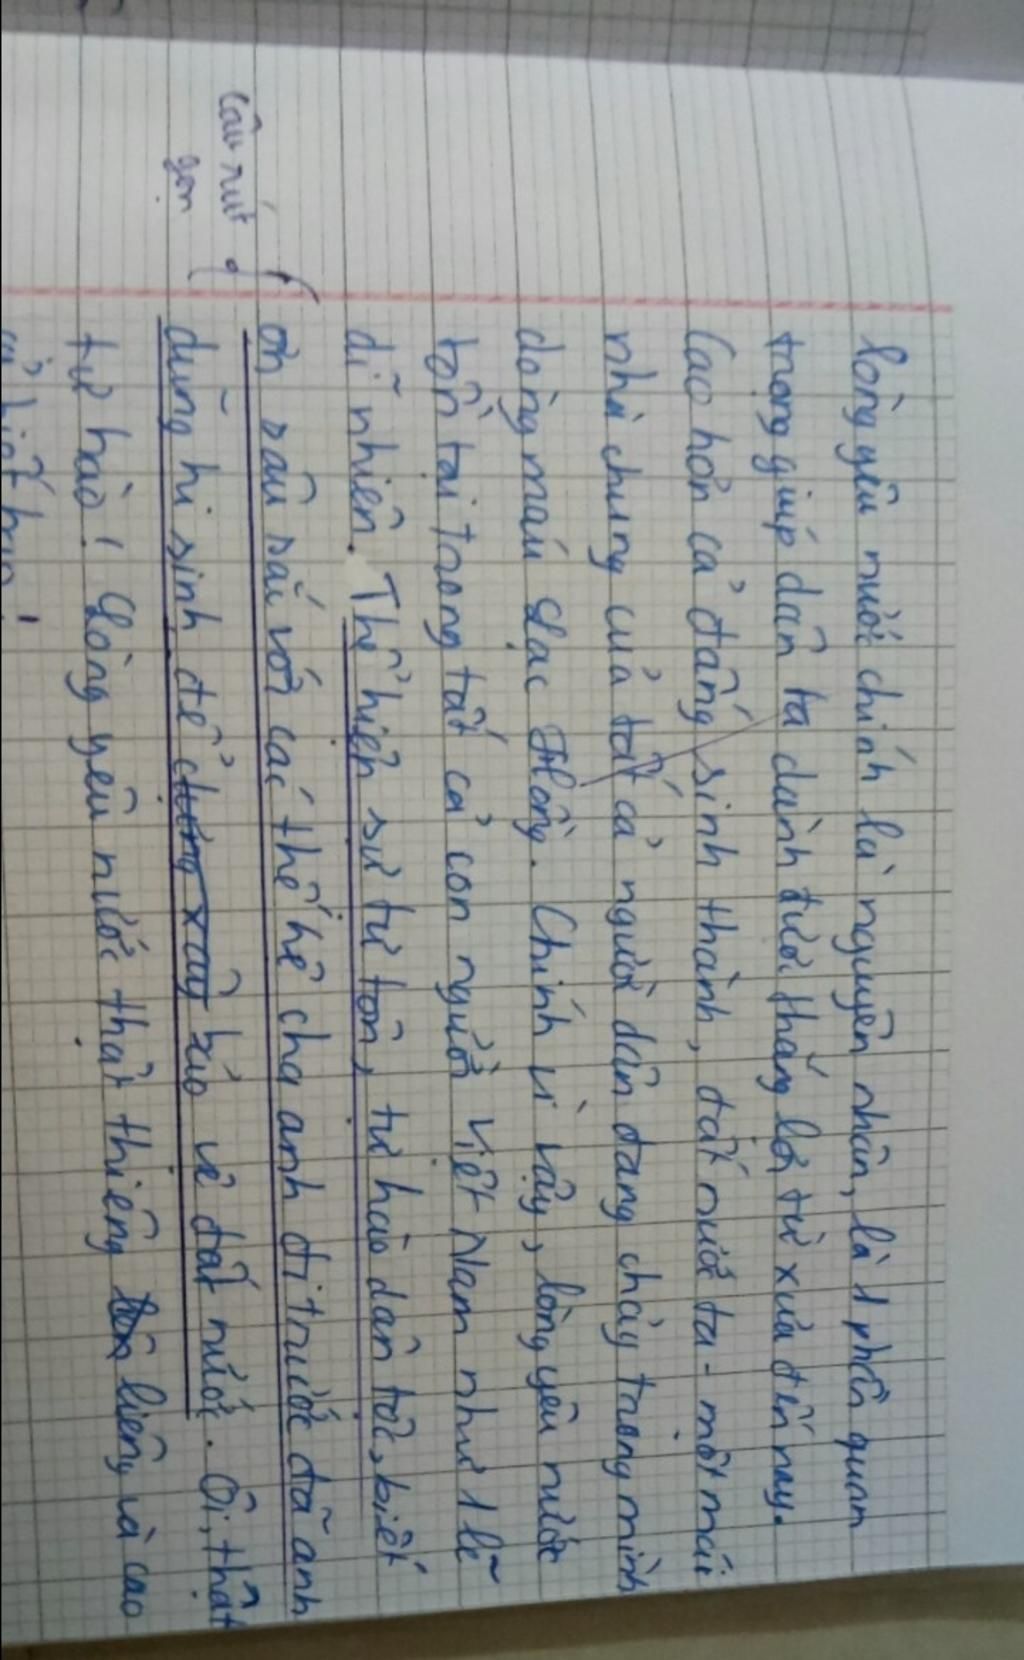 lòng yêu nước chính là nguyên nhân, là 1 phần quan
trọng giúp dân ta dành được thắng lợi từ xưa đến nay.
Cao hơn cả đấng sinh thành, đất nước ta - một mái
nhà chung của tất cả người dân đang chảy trong mình
dòng máu Lạc Hồng. Chính vì vậy, lòng yêu nước
tồn tại trong tất cả con người Việt Nam như 1 lẽ
dĩ nhiên. Thể hiện sự tự tôn, tự hào dân tộc, biết
ơn sâu sắc với các thế hệ cha anh đi trước đã anh
câu rút
gọn
dũng hi sinh để bảo vệ đất nước. Ôi, thật
tự hào! Lòng yêu nước thật thiêng liêng và cao